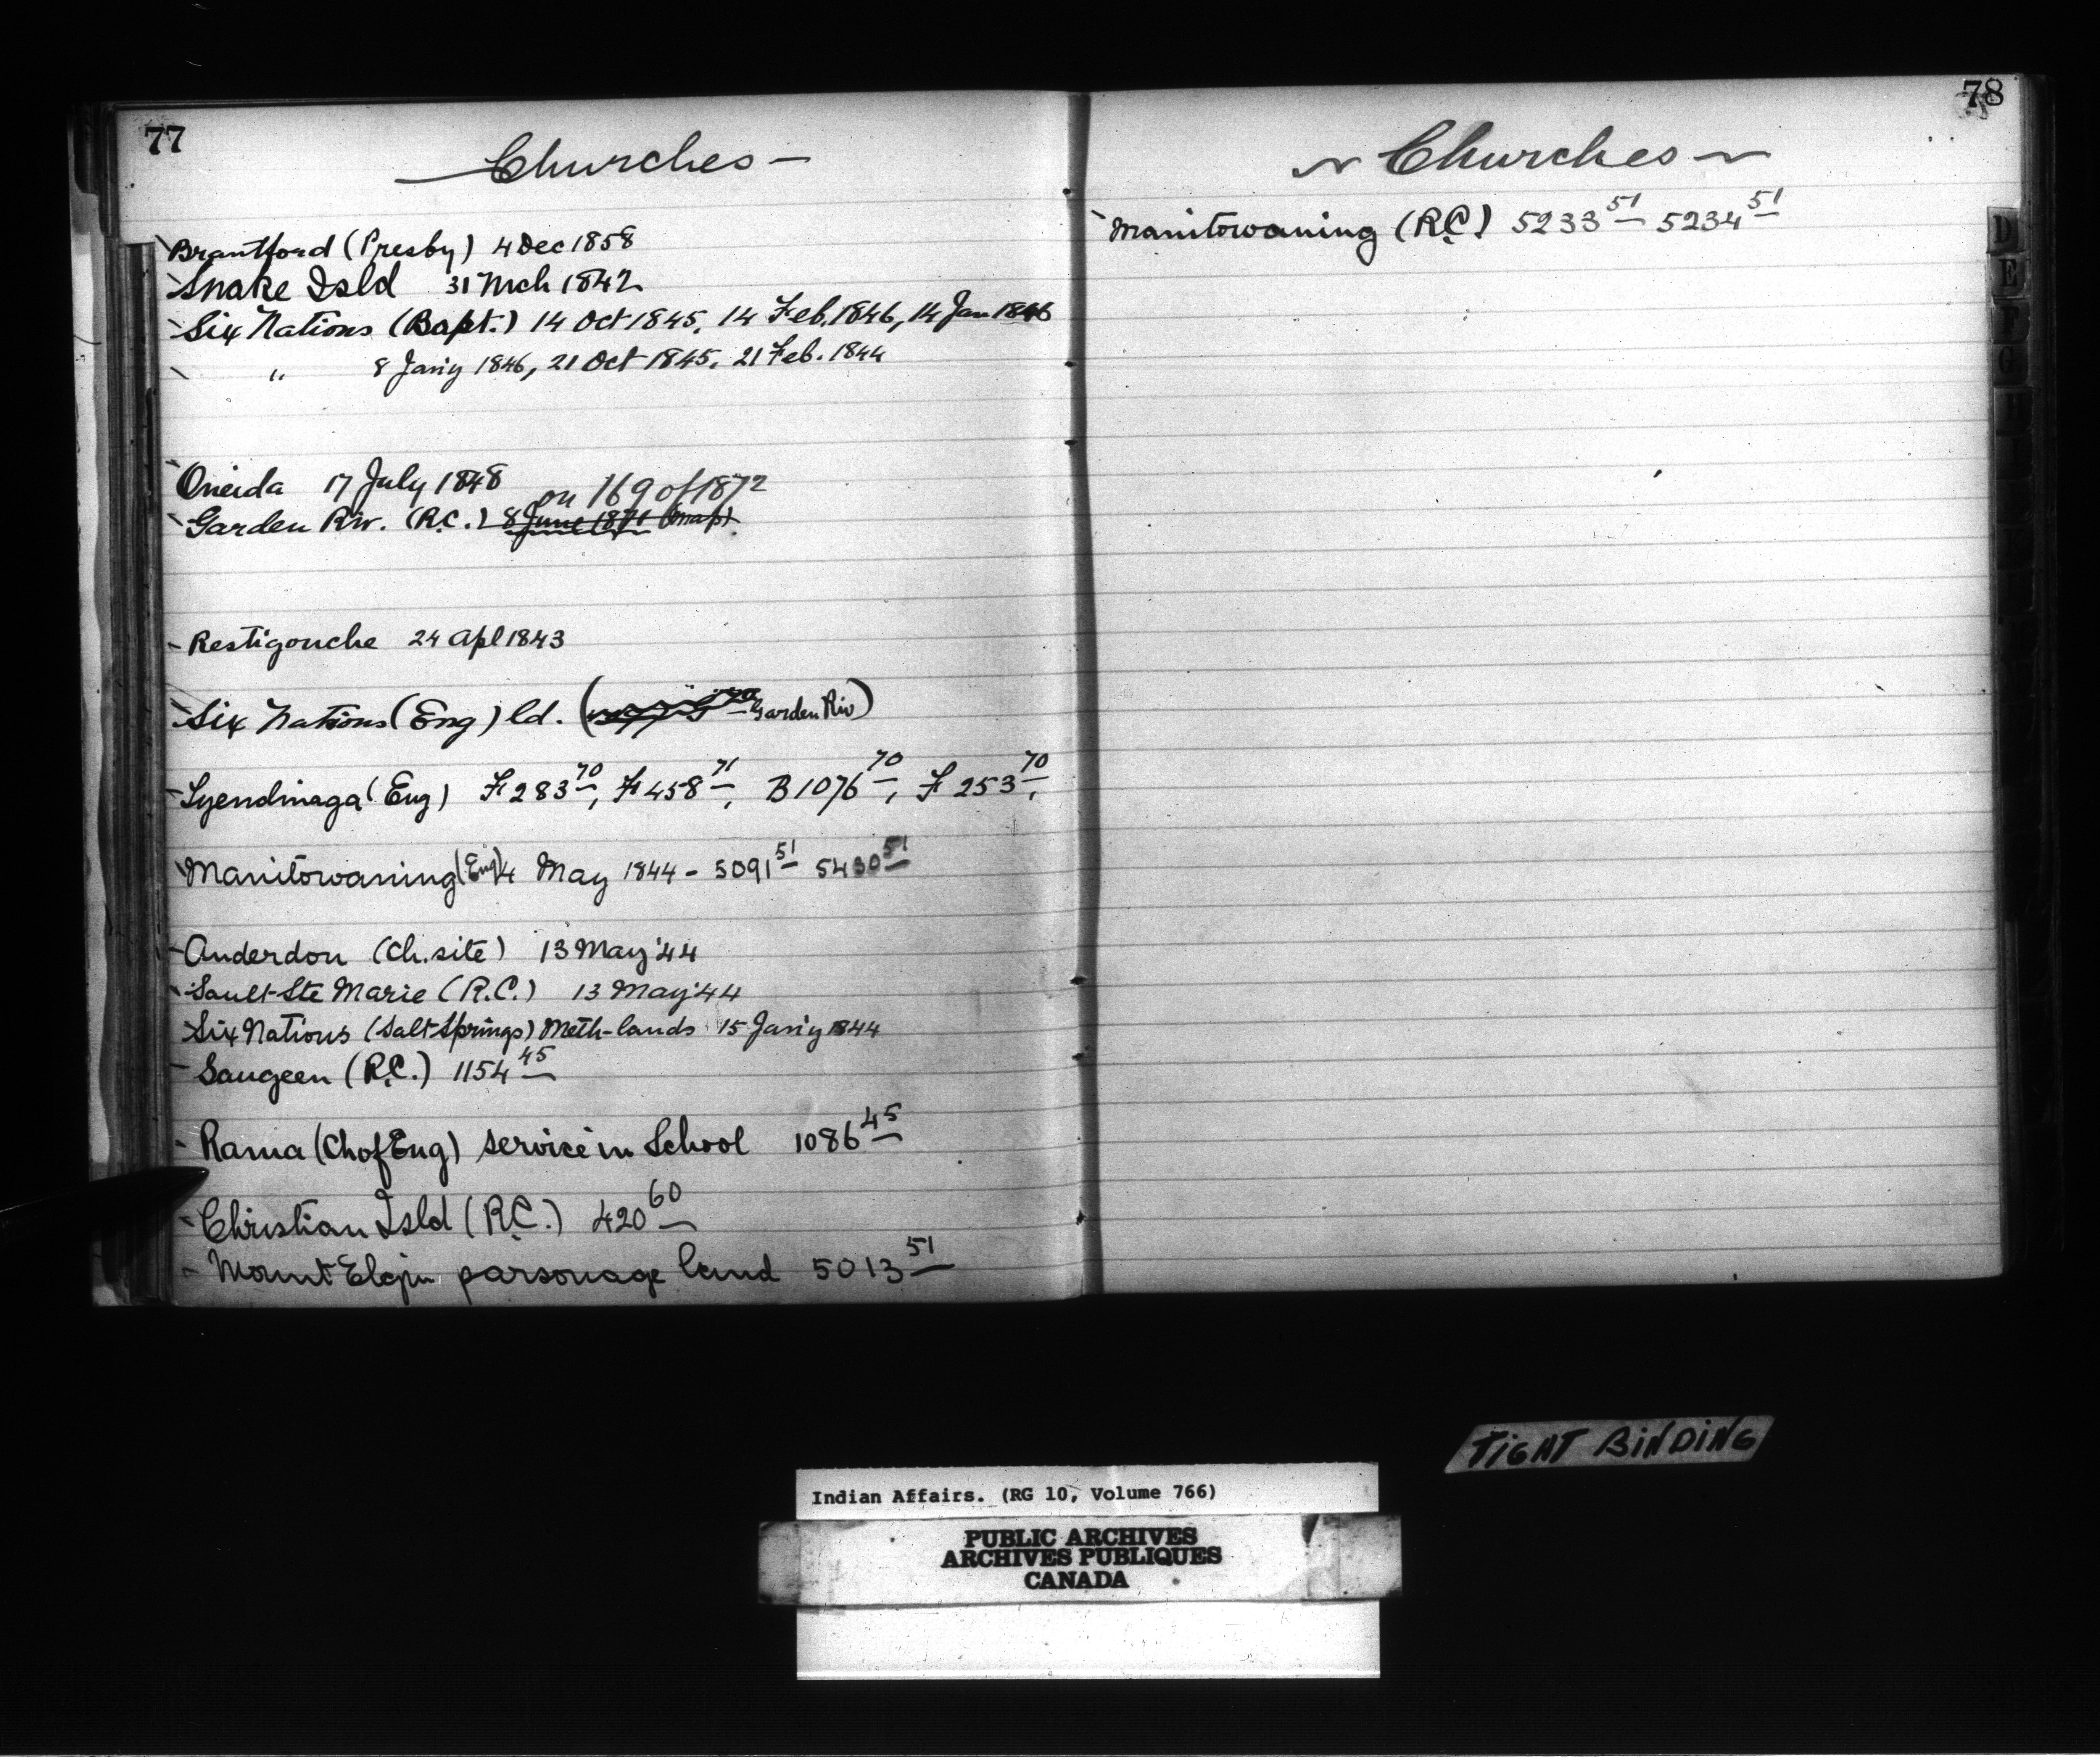 77
Churches
Brantford (Presby) 4 Dec 1858
Snake Isld 31 Mch 1842
Six Nations (Bapt.) 14 Oct 1845, 14 Feb. 1846, 14 Jan 1846
" 8 Jan'y 1846, 21 Oct 1845, 21 Feb. 1844
Oneida 17 July 1848
on 169 of 1872
Garden Riv. (R.C.) 8 June 1871 (map)
Restigouche 24 Apl 1843
Six Nations (Eng) ld. ( Garden Riv)
Tyendinaga (Eng) F 283 70, F 458 71, B 1076 70, F 253 70,
Manitowaning (Eng) 4 May 1844 - 5091 51 5430 51
Anderdon (Ch. site) 13 May '44
Sault Ste Marie (R.C.) 13 May '44
Six Nations (Salt Springs) Meth-lands 15 Jan'y 1844
Saugeen (R.C.) 1154 45
Rama (Ch of Eng) service in School 1086 45
Christian Isld (R.C.) 420 60
Mount Elgin parsonage land 5013 51
78
Churches
Manitowaning (R.C.) 5233 51 5234 51
D
E
F
G
H
TIGHT BINDING
Indian Affairs. (RG 10, Volume 766)
PUBLIC ARCHIVES
ARCHIVES PUBLIQUES
CANADA